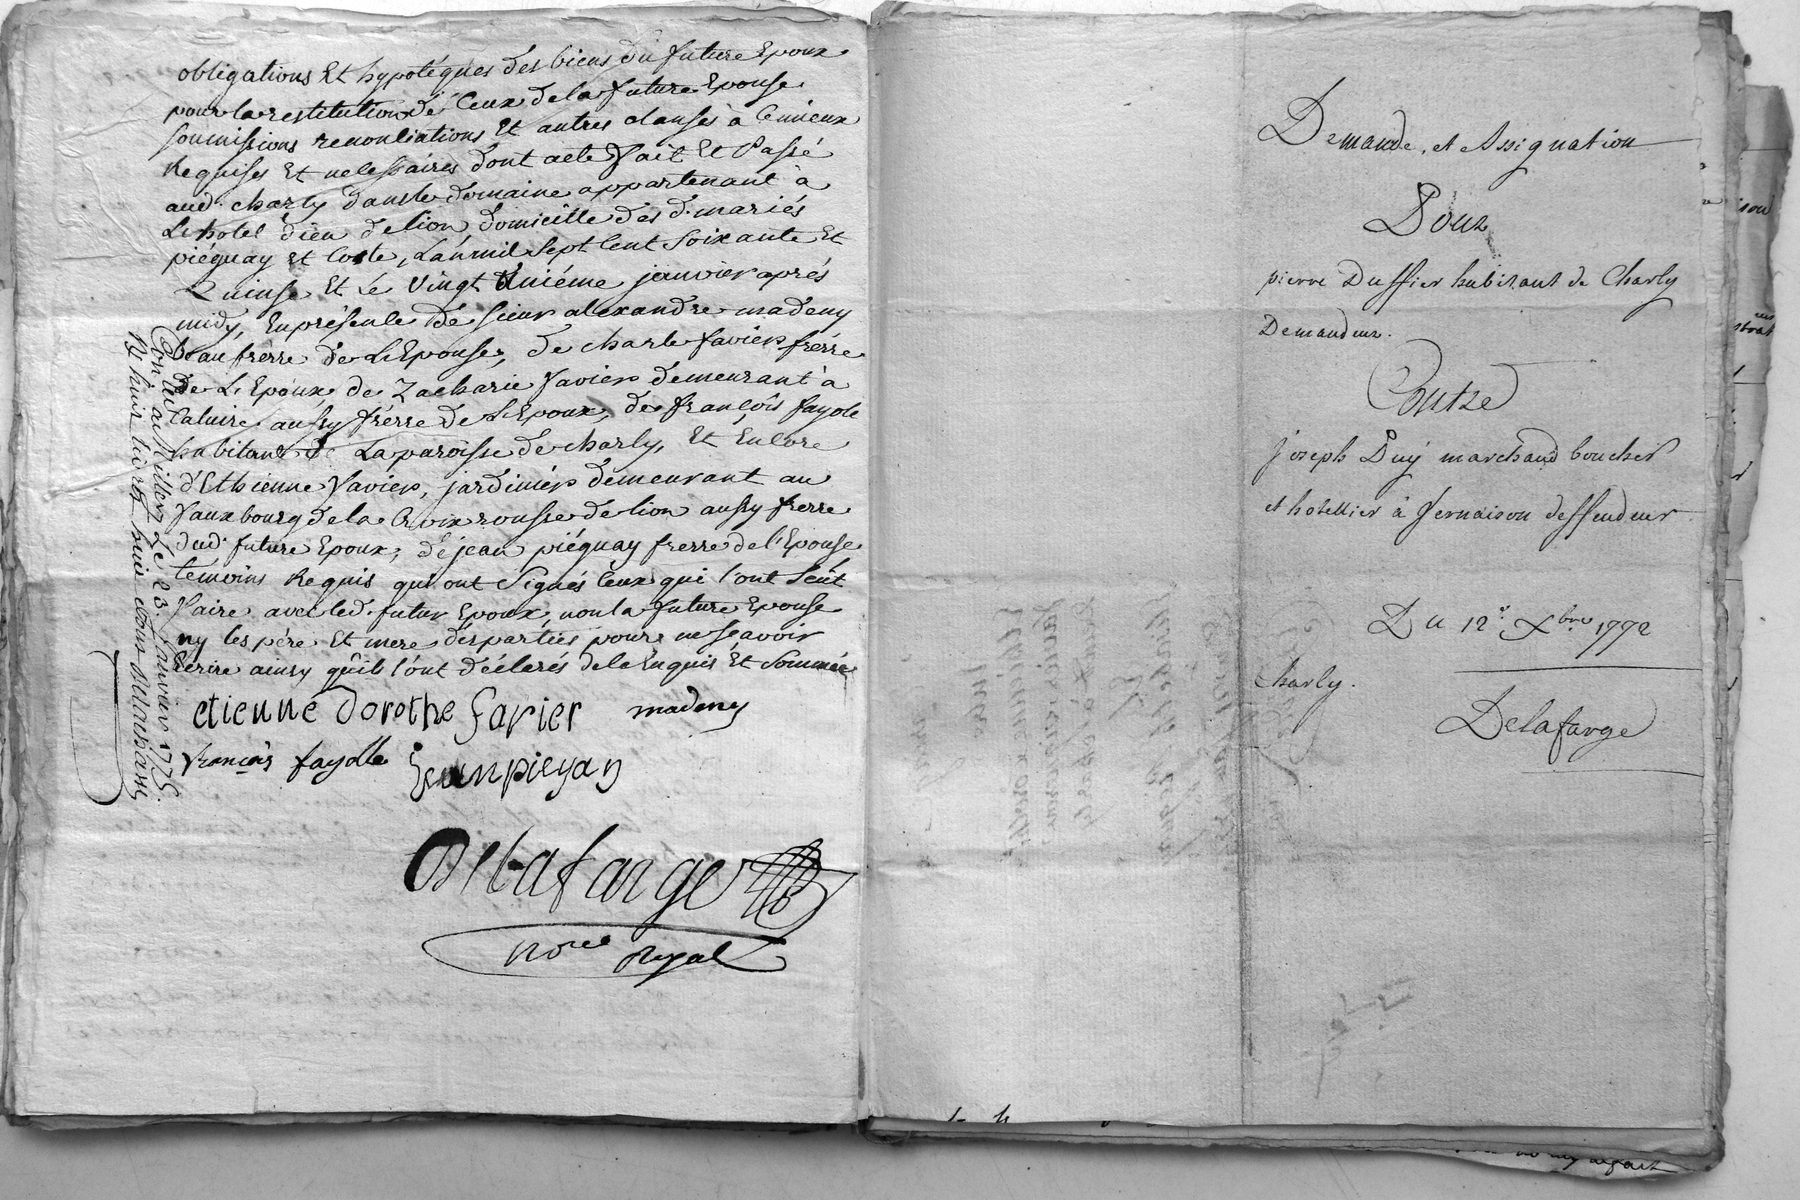 obligations Et hypotéques des biens du future Epoux
pour la restitution de Ceux de la future Epouse
soumissions renonciations Et autres clauses à Ce mieux
Requises Et necessaires dont acte fait Et Passé
aud. charly dans le domaine appartenant à
L'hotel dieu de lion, domicille des d. mariés
piéguay et Coste, L'an mil sept Cent soixante Et
Quinse Et Le Vingt Unième janvier aprés
midy, En présence de sieur alexandre madeny
beaufrère de L'Epouse, de charle favier frère
de L'Epoux de Zacharie favier demeurant à
Caluire aussy frére de L'Epoux, de françois fayole
habitant de La paroisse de charly, Et Encore
d'Ethienne favier, jardinier demeurant au
fauxbourg de la Croix rousse de lion aussy frere
dud. future Epoux; de jean piéguay frerre de l'Epouse
temoins Requis qui ont Signés Ceux qui l'ont Sçut
faire avec led. futur Epoux, non la future Epouse
ny les pére Et mere des parties pour ne scavoir
Ecrire ainsy qu'ils l'ont déclarés de ce Enquis Et Sommée
etienne dorothe favier madeny
francois fayolle
jeanpieyay
Delafarge
no.re Royal
Con.llé à Millery Le 23. Janvier 1775.
Demande, et Assignation
Pour
pierre Duffier habitant de Charly
Demandeur.
Contre
joseph Puy marchand boucher
et hotellier à Vernaison deffendeur
Du 12.e Xbre 1772
Charly.
Delafarge